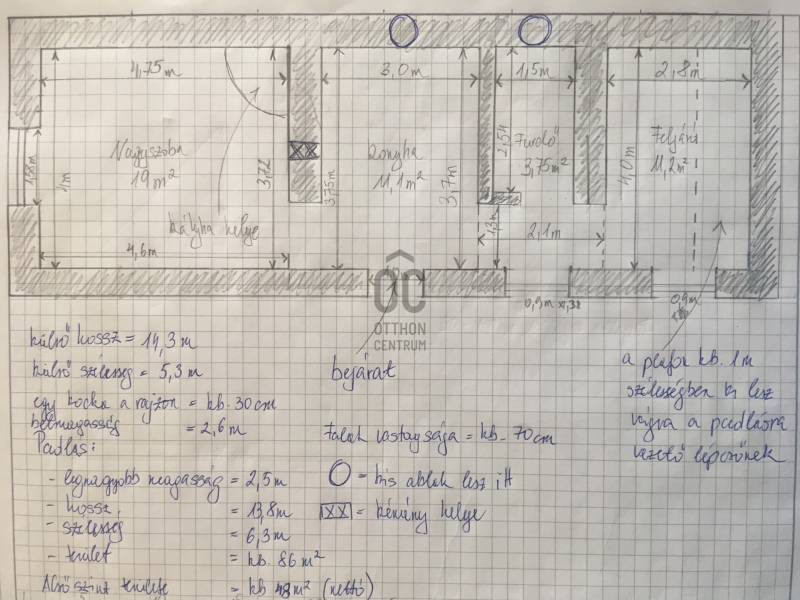 4,75m
3,0m
1,5m
2,8m
1
Nagyszoba
19m²
1,58m
4m
3,72
kályha helye
4,6m
Konyha
11,1m²
3,75m
3,7m
2,54
Fürdő
3,75m²
1,2m
2,1m
4,0m
Feljáró
11,2m²
0,9m
OTTHON
CENTRUM
bejárat
külső hossz = 14,3m
külső szélesség = 5,3m
egy kocka a rajzon = kb. 30cm
belmagasság = 2,6m
Padlás:
- legnagyobb magasság = 2,5m
- hossz = 13,8m
- szélesség = 6,3m
- terület = kb. 86m²
Alsó szint területe = kb 48m² (nettó)
Falak vastagsága = kb. 70cm
O = kis ablak lesz itt
XX = kémény helye
a plafon kb. 1m
szélességben ki lesz
vágva a padlásra
vezető lépcsőnek